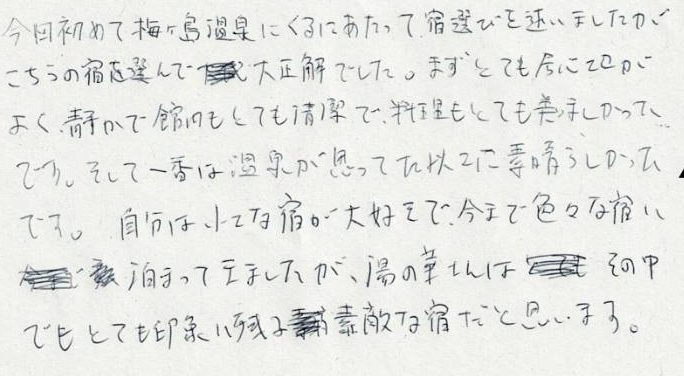 今回初めて梅ヶ島温泉にくるにあたって宿選びを迷いましたが
こちらの宿を選んで大正解でした。まずとても居心地が
よく静かで館内もとても清潔で、料理もとても美味しかった
です。そして一番は温泉が思ってた以上に素晴らしかった
です。自分は小さな宿が大好きで、今まで色々な宿に
泊まってきましたが、湯の華さんは その中
でもとても印象に残る素敵な宿だと思います。